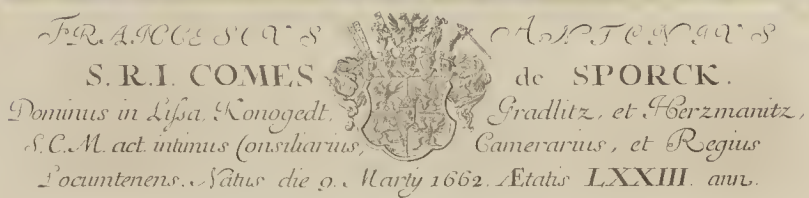 FRANCISCVS ANTONIVS
S. R. I. COMES de SPORCK.
Dominus in Lißa. Konogedt. Gradlitz, et Herzmanitz,
S. C. M. act. intimus Consiliarius, Camerarius, et Regius
Locumtenens. Natus die 9. Martÿ 1662. Ætatis LXXIII. ann.